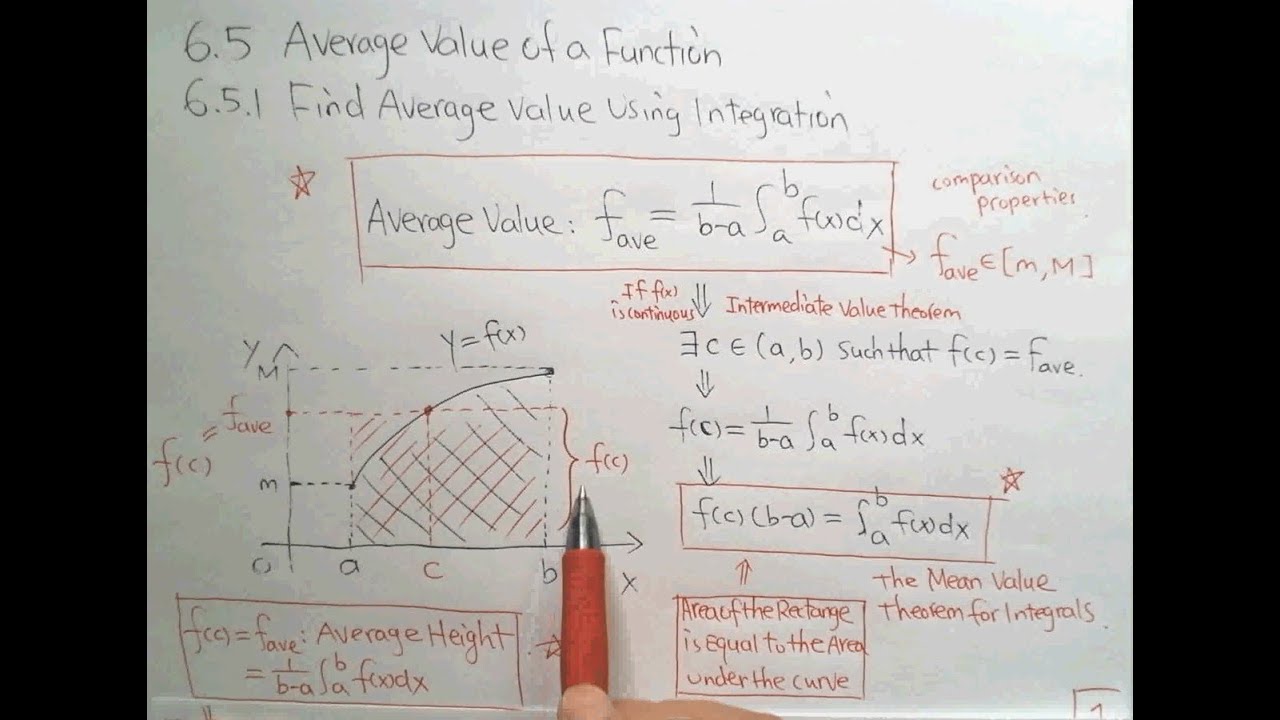 6.5 Average Value of a Function
6.5.1 Find Average Value Using Integration
☆
Average Value: f_ave = 1/(b-a) ∫_a^b f(x)dx
comparison
properties
→ f_ave ∈ [m, M]
If f(x)
is continuous
⇓ Intermediate Value theorem
∃ c ∈ (a, b) such that f(c) = f_ave.
⇓
f(c) = 1/(b-a) ∫_a^b f(x)dx
⇓
☆
f(c)(b-a) = ∫_a^b f(x)dx
⇑
the Mean Value
Theorem for Integrals.
Area of the Rectange
is Equal to the Area
under the curve
y
M
y = f(x)
f_ave
=
f(c)
f(c)
m
O
a
c
b
x
f(c) = f_ave : Average Height
= 1/(b-a) ∫_a^b f(x)dx
☆
1